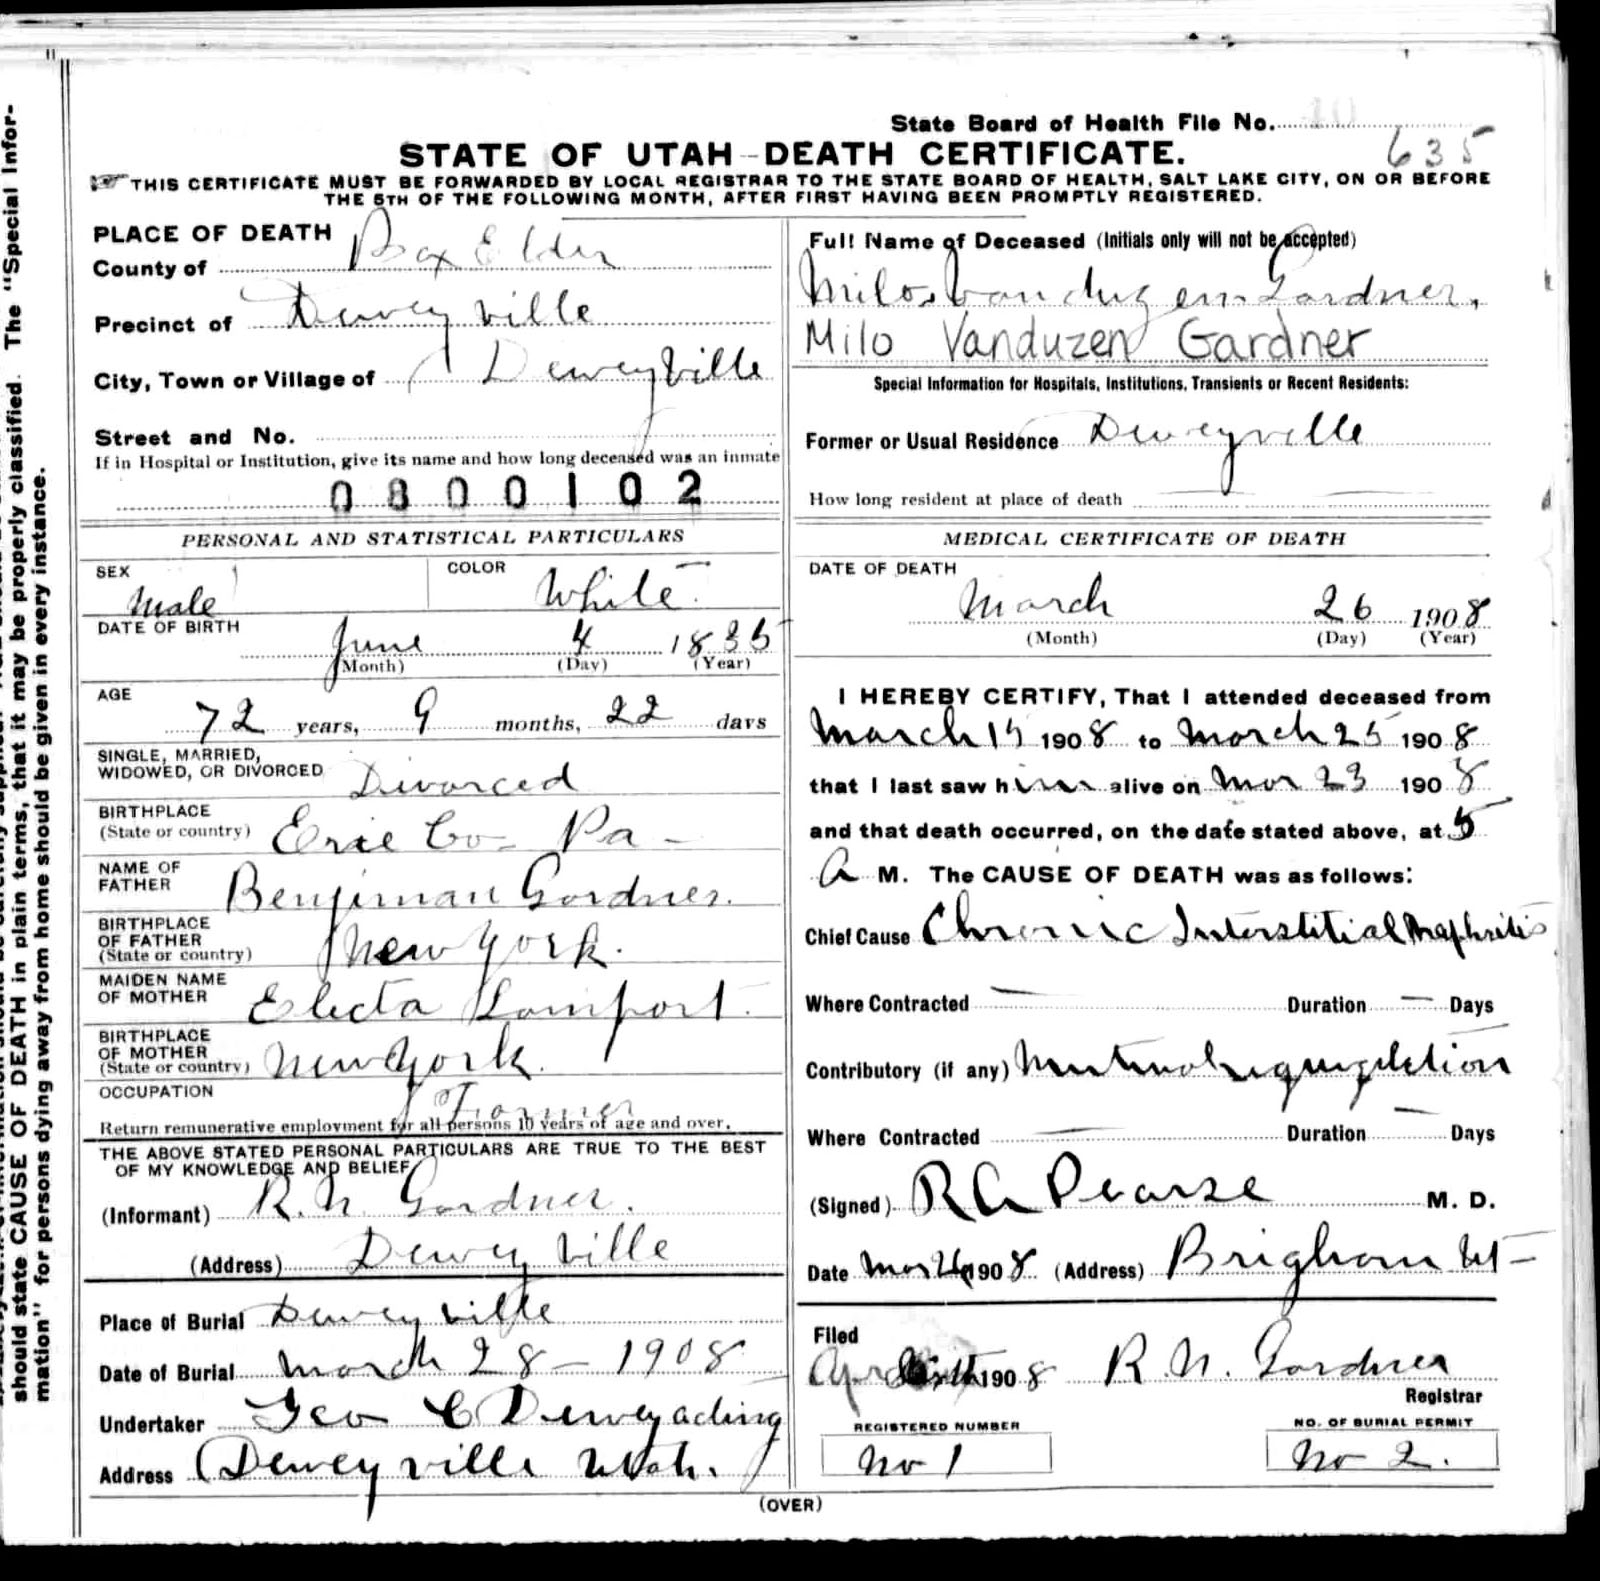 State Board of Health File No.
635
STATE OF UTAH--DEATH CERTIFICATE.
THIS CERTIFICATE MUST BE FORWARDED BY LOCAL REGISTRAR TO THE STATE BOARD OF HEALTH, SALT LAKE CITY, ON OR BEFORE
THE 5TH OF THE FOLLOWING MONTH, AFTER FIRST HAVING BEEN PROMPTLY REGISTERED.
PLACE OF DEATH
County of Box Elder
Precinct of Deweyville
City, Town or Village of Deweyville
Street and No.
If in Hospital or Institution, give its name and how long deceased was an inmate
0800102
PERSONAL AND STATISTICAL PARTICULARS
SEX Male COLOR White
DATE OF BIRTH June 4 1835
(Month) (Day) (Year)
AGE 72 years, 9 months, 22 days
SINGLE, MARRIED,
WIDOWED, OR DIVORCED Divorced
BIRTHPLACE
(State or country) Erie Co- Pa-
NAME OF
FATHER Benjiman Gardner.
BIRTHPLACE
OF FATHER
(State or country) New York.
MAIDEN NAME
OF MOTHER Electa Lamport.
BIRTHPLACE
OF MOTHER
(State or country) New York.
OCCUPATION Farmer
Return remunerative employment for all persons 10 years of age and over.
THE ABOVE STATED PERSONAL PARTICULARS ARE TRUE TO THE BEST
OF MY KNOWLEDGE AND BELIEF
(Informant) R. N. Gardner.
(Address) Deweyville
Place of Burial Deweyville
Date of Burial March 28-1908
Undertaker Geo C Dewey acting
Address Deweyville Utah.
Full Name of Deceased (Initials only will not be accepted)
Milo Vanduzen Gardner.
Milo Vanduzen Gardner
Special Information for Hospitals, Institutions, Transients or Recent Residents:
Former or Usual Residence Deweyville
How long resident at place of death
MEDICAL CERTIFICATE OF DEATH
DATE OF DEATH
March 26 1908
(Month) (Day) (Year)
I HEREBY CERTIFY, That I attended deceased from
March 15 1908 to March 25 1908
that I last saw him alive on Mar 23 1908
and that death occurred, on the date stated above, at 5
A M. The CAUSE OF DEATH was as follows:
Chief Cause Chronic Interstitial Nephritis
Where Contracted — Duration — Days
Contributory (if any)
Where Contracted — Duration — Days
(Signed) R A Pearse M. D.
Date Mar 1908 (Address) Brigham Ut-
Filed
1908 R. N. Gardner
Registrar
REGISTERED NUMBER
No 1
NO. OF BURIAL PERMIT
No 2.
(OVER)
should state CAUSE OF DEATH in plain terms, that it may be properly classified. The "Special Infor-
mation" for persons dying away from home should be given in every instance.